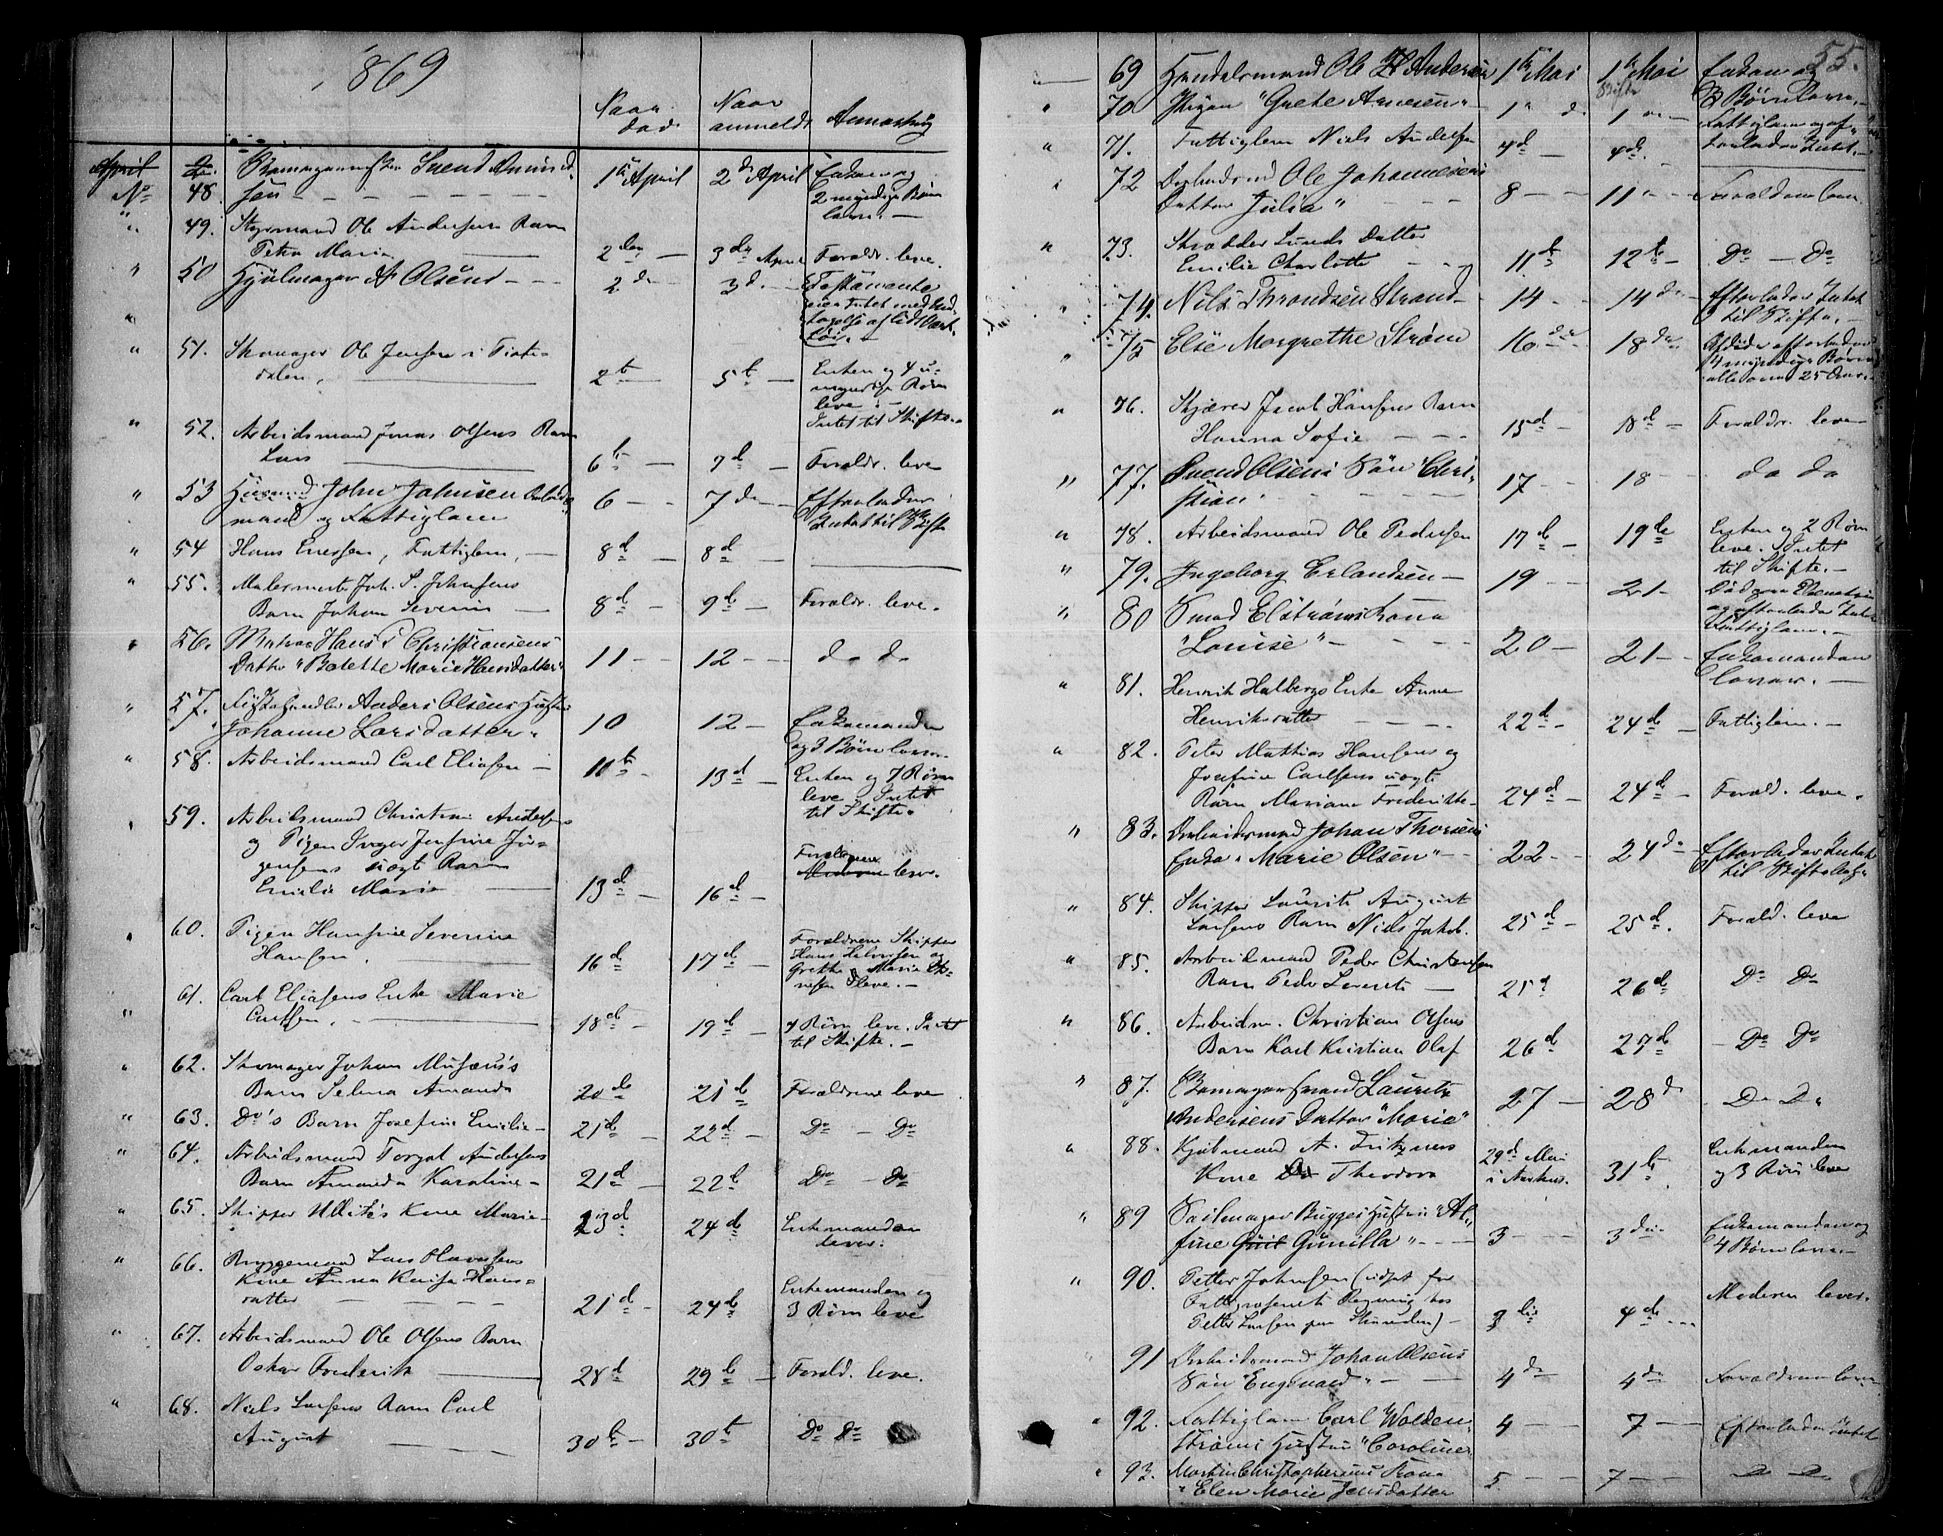 1869
Naar
død
Naar
anmeldt
Anmærkning
April
No 48. Svend Amund
sen
1ste April 2 April Enken og
2 myndige Børn
49. Styrmand Ole Andersens Barn
Petra Marie
2den 3de April Foraldr. leve.
50 Hjulmager Olsens
2de 3d. Testamente
51. Skomager Ole Jensen i Tiste-
dalen,
2det 5t Enken og 4 u-
myndige Børn
leve.
Intet til Skifte.
52. Arbeidsmand Jonas Olsens Barn
Lars
6t 7d Foraldr. leve
53 John Johnsen
mand og Fattiglem
6 7de Efterlader
Intet til Skifte
54 Hans Enersen, Fattiglem,
8d 8d
55. Malermester Joh. S. Johnsens
Barn Johan Severin
8d 9d Foraldr. leve.
56. Matros Hans Christiansens
Datter "Bolette Marie Hansdatter"
11 12 do do
57. Anders Olsens Hustru
Johanne Larsdatter
10 12 Enkemanden
og 3 Børn lever
58. Arbeidsmand Carl Eliasen
11t 13d Enken og 7 Børn
leve. Intet
til Skifte.
59. Arbeidsmand Christian Andersens
og Pigen Inger Josefine Jör-
gensens uægt Barn
Emilie Marie
13d 16d Forældrene
leve.
60. Pigen Hansine Severine
Hansen.
16d 17d Forældrene Skipper
Hans Halvorsen og
Grethe Marie
leve.
61. Carl Eliasens Enke Marie
18d 19d 4 Børn leve. Intet
til Skifte.
62. Skomager Johan Musæus's
Barn Selma Amanda
20de 21d Forældrene leve
63. Do's Barn Josefine Emilie
21d 22d Do Do
64. Arbeidsmand Torgal Andersens
Barn Amanda Karoline
21d 22d Do Do
65. Skipper Ulleits Kone Marie
23d. 24d Enkemanden
lever.
66. Bryggemand Lars Olavesens
Kone Anna Kaisa Hans-
datter
21d 24d Enkemanden og
3 Børn leve
67. Arbeidsmand Ole Olsens Barn
Oskar Frederik
28d 29d Forald. leve.
68. Niels Larsens Barn Carl
August
30t 30t Do Do
55.
69 Handelsmand Ole H Andersen 1ste Mai 1ste Mai Enken og
3 Børn lever
70. Pigen "Grete Arnesen" 1 d 1
71. Fattiglem Niels Andersen
4d 4de. Efterlader Intet
72 Arbeidsmd Ole Johannesens
Datter Julia"
8 11 Foraldrene lever
73. Skrædder Lunds Datter
Emilie Charlotte
11t 12t Do Do
74. Nils Throndsen Strand 14 14de Efterlader Intet
til Skifte.
75 Else Margrethe Strøm 16de 18de
4 myndige Børn
alle over 25 Aar.
76. Skjærer Jacob Hansens Barn
Hanna Sofie
15d 18d Foraldr. leve
77. Svend Olsens Søn "Chri-
stian.
17 18 do do
78. Arbeidsmand Ole Pedersen 17d 19de Enken og 2 Børn
leve. Intet
til Skifte.
79. Ingeborg Erlandsen 19 21
80 Smed Elstrøms Kone
"Louise"
20 21 Enkemanden
lever.
81. Henrik Halbergs Enke Anne
Henriksdatter
22de 24de Fattiglem.
82. Peter Mathias Hansens og
Josefine Carlsens uægte
Barn Mariane Frederikke
24d 24d Forald. leve.
83. Arbeidsmand Johan Thorsens
Enke "Marie Olsen"
22 24de Efterlader Intet
til
84. Skipper Laurits August
Larsens Barn Niels Jakob.
25d 25d. Forald. leve
85. Arbeidsmand Peder Christensens
Barn Peder
25d 26d Do Do
86. Arbeidsm. Christian Olsens
Barn Karl Kristian Olaf
26d 27d Do Do
87. Lauritz
Andersens Datter "Marie"
27 28d Do Do
88. Kjøbmand A. Fritzners
Kone Theodora
29d Mai
i Aarhus. 31t Enkemanden
og 3 Børn leve
89 Seilmager Bugges Hustru "Al-
fine Gunilla"
3 3die Enkemanden og
4 Børn lever
90. Petter Johnsen (udsat for
Fattigvæsenets Regning hos
Petter Larsen paa
3die 4de Moderen lever.
91 Arbeidsmand Johan Olsens
Søn "Engvald"
4de 4de Foraldrene lever
92. Fattiglem Carl Wolden-
strøms Hustru "Caroline"
4 7 Efterlader Intet
93. Martin Christophersens Kone
"Elen Marie Jensdatter
5. 7 Do Do